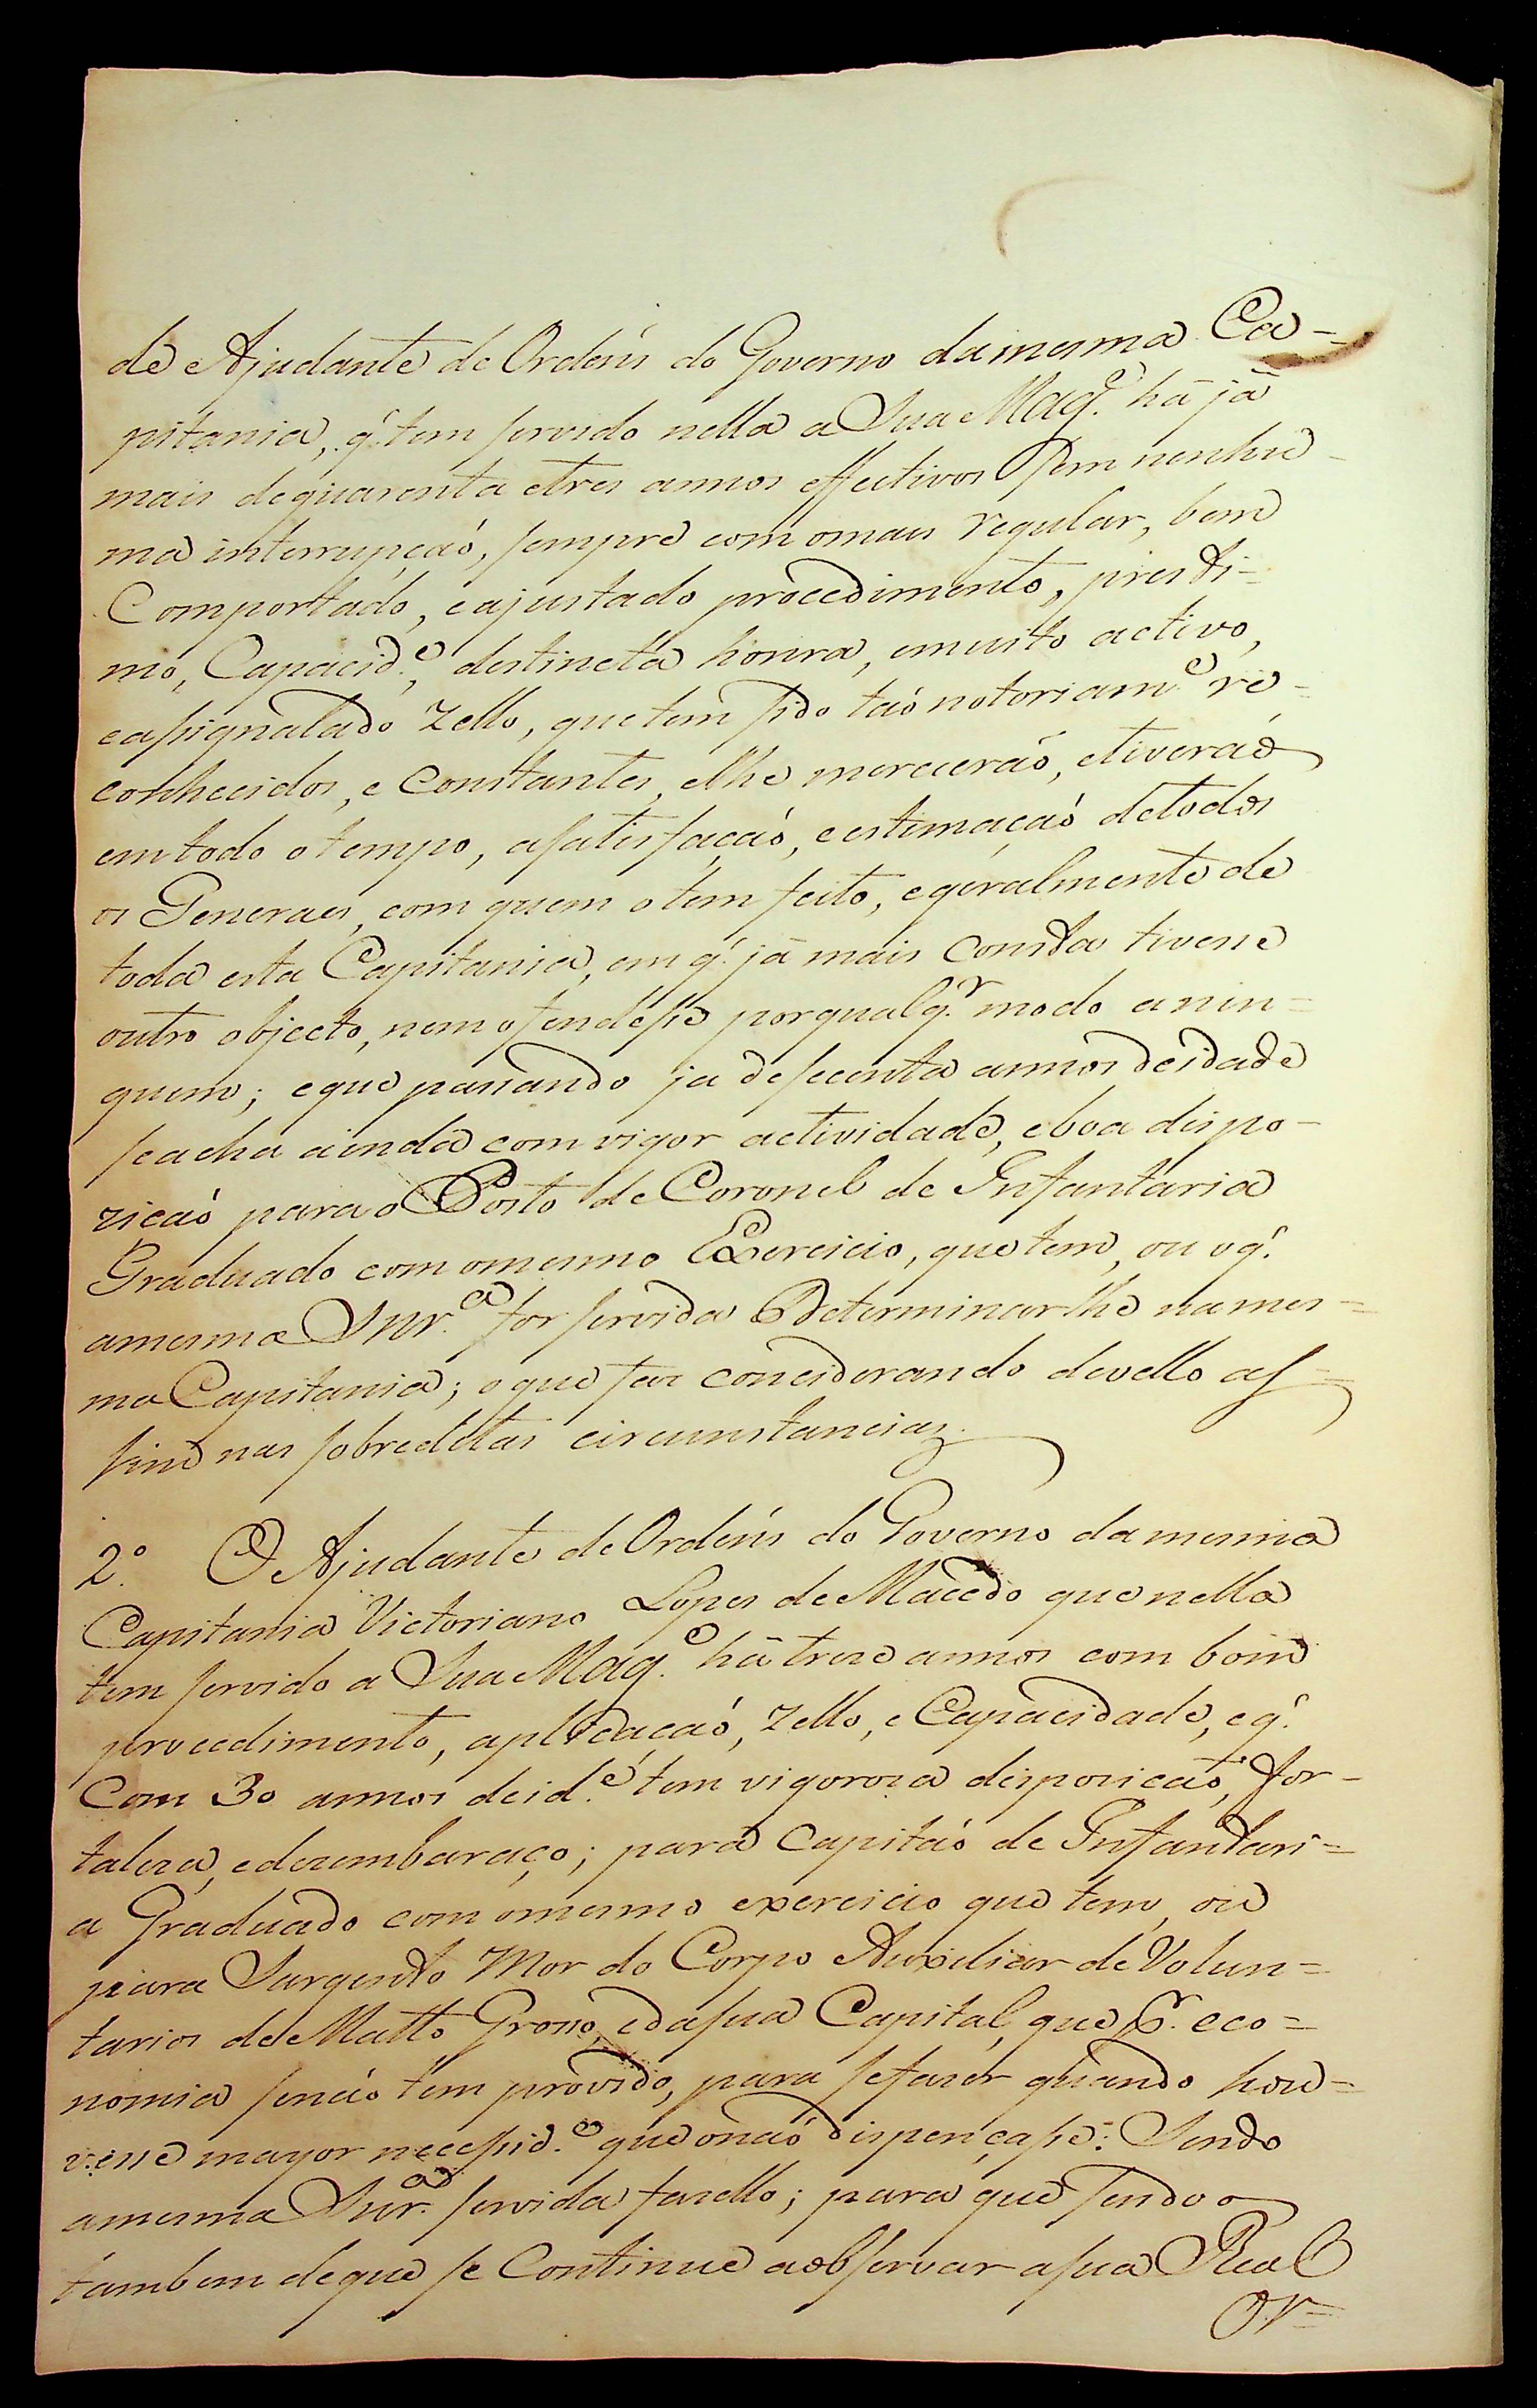 de Ajudante de Ordéns do Governo da mesma Ca-
pitania, q̃. tem servido nella a Sua Mag.e há já
mais de quarenta e tres annos effectivos sem nenhu-
ma interrupçaõ, sempre com o mais regular, bem
Comportado, e ajustado procedimento, presti-
mo, Capacid.e, destincta honra, e muito activo,
e assignalado Zello, que tem sido taõ notoriam.e re-
conhecidos, e Constantes, e lhe mereceraõ, e tiveraõ
em todo o tempo, a satisfaçaõ, e estimaçaõ de todos
os Generaes, com quem o tem feito, e geralmente de
toda esta Capitania, em q̃. já mais Consta tivesse
outro objecto, nem ofendesse por qualq.r modo a nin=
guem; e que passando ja de secenta annos de idade
se acha ainda com vigor actividade, e boa dispo-
ziçaõ para o Posto de Coronel de Infantaria
Graduado com o mesmo Exercicio, que tem, ou o q̃.
a mesma Snr.a for servida Determinar lhe na mes=
ma Capitania; o que faz considerando devello as=
sim nas sobreditas circunstancias.
2.º O Ajudante de Ordéns do Governo da mesma
Capitania Victoriano Lopes de Macedo que nella
tem servido a Sua Mag.e há treze annos com bom
procedimento, aplicaçaõ, Zello, e Capacidade, e q̃.
Com 30 annos de id.e tem vigoroza dispoziçaõ, for-
taleza, e dezembaraço; para Capitaõ de Infantari=
a Graduado com o mesmo exercicio que tem, ou
para Sargento Mor do Corpo Auxiliar de Volun=
tarios de Matto Grosso, e da sua Capital, que p.r eco=
nomia se naõ tem provido, para se fazer quando hou=
vesse mayor necessid.e que o naõ dispençasse: Sendo
a mesma Snr.a servida fazello; para que sendo o
tambem de que se Continue a observar a sua Real
Or=